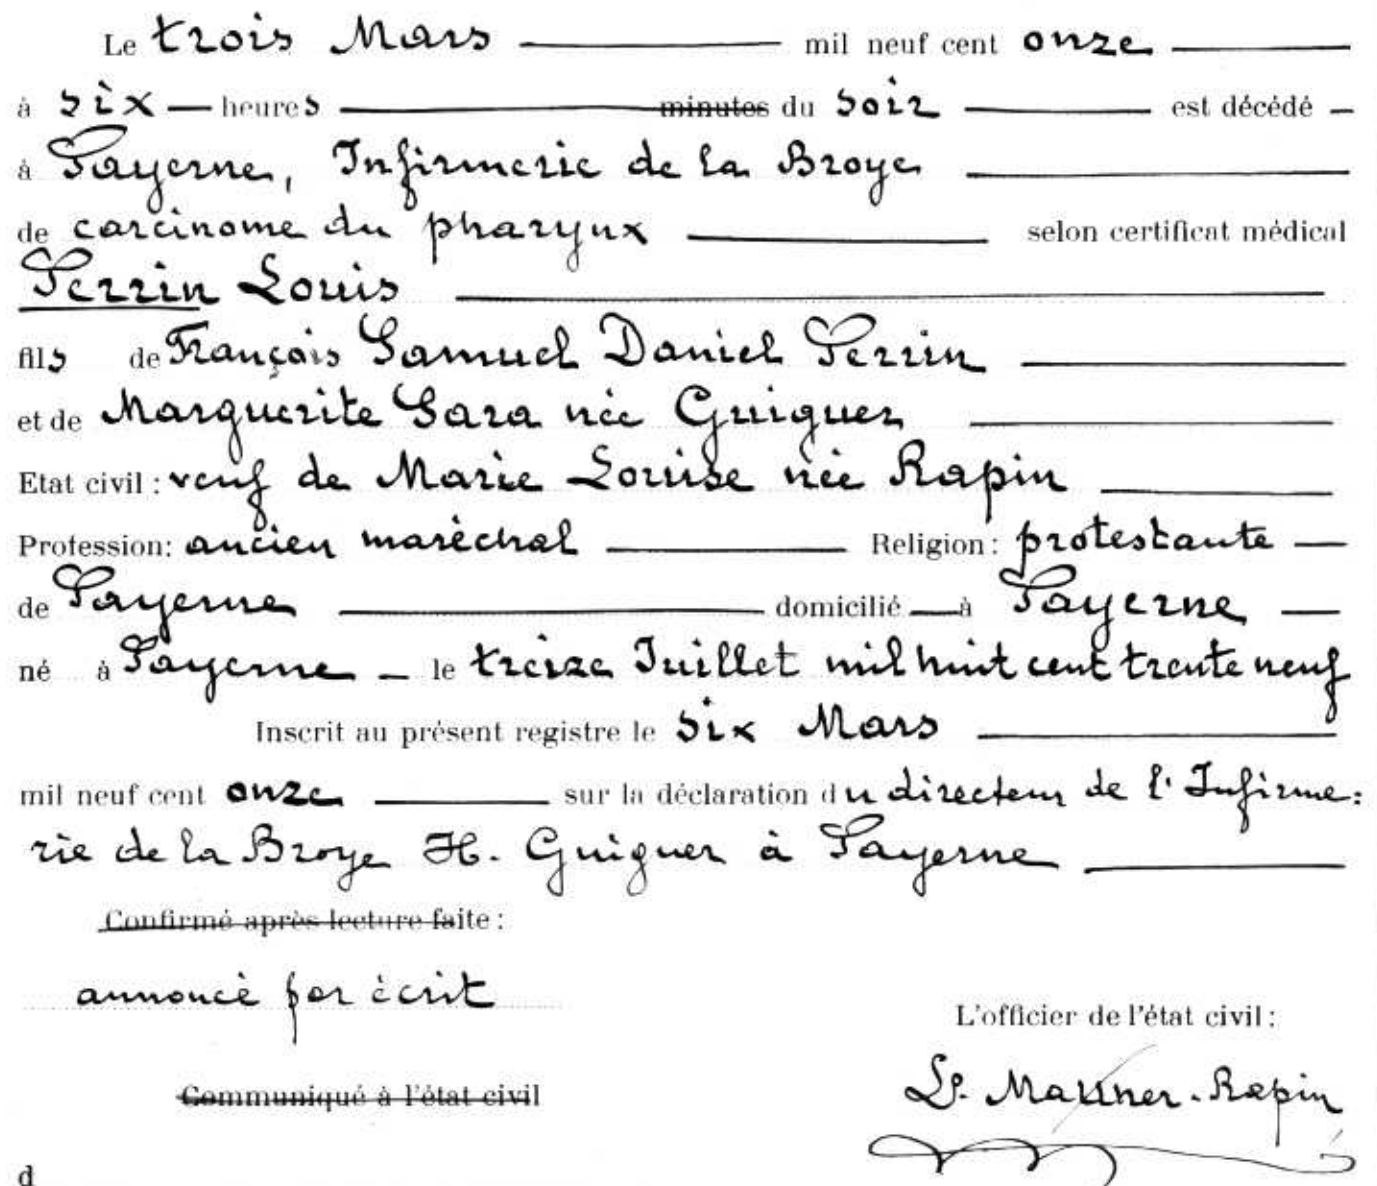 Le trois Mars mil neuf cent onze
à six heures minutes du soir est décédé
à Payerne, Infirmerie de la Broye
de carcinome du pharynx selon certificat médical
Perrin Louis
fils de François Samuel Daniel Perrin
et de Marguerite Sara née Guiguer
Etat civil : veuf de Marie Louise née Rapin
Profession: ancien maréchal Religion: protestante
de Payerne domicilié à Payerne
né à Payerne le treize Juillet mil huit cent trente neuf
Inscrit au présent registre le six Mars
mil neuf cent onze sur la déclaration du directeur de l'Infirme:
rie de la Broye H. Guiguer à Payerne
Confirmé après lecture faite :
annoncé par écrit
L'officier de l'état civil :
Communiqué à l'état civil
Ls. -Rapin
d